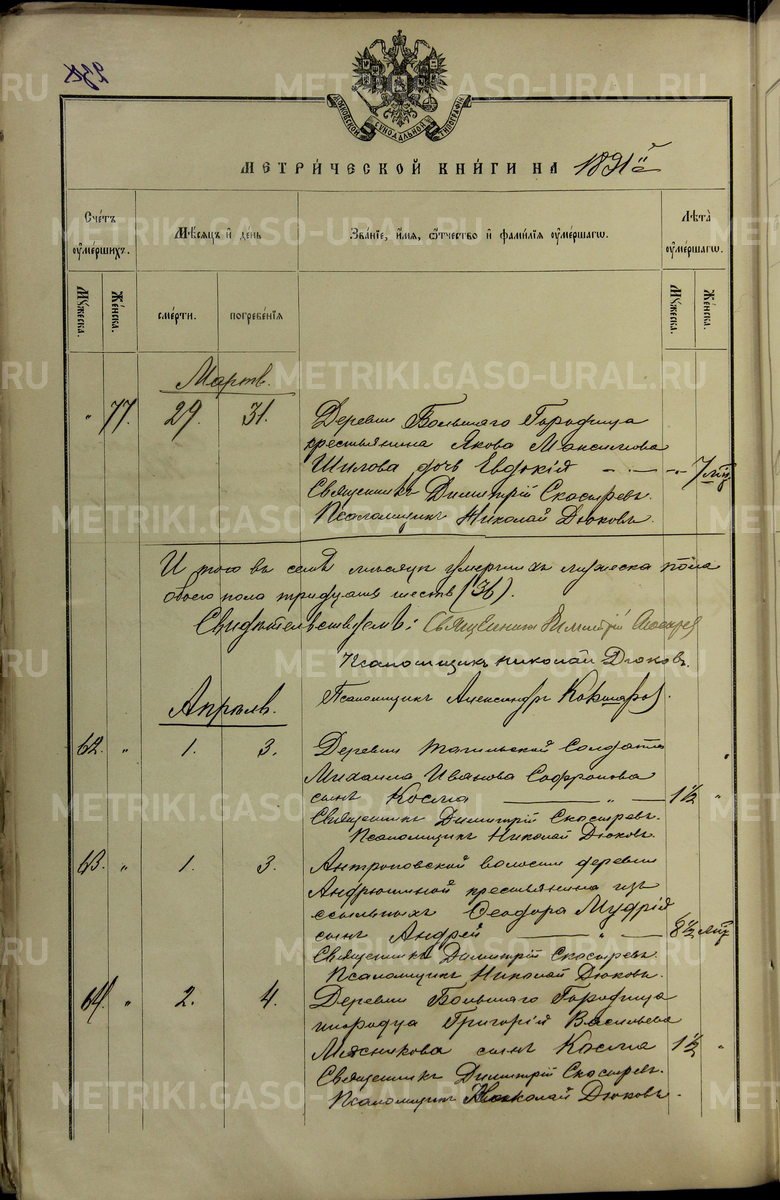 МОСКОВСКОЙ СѴНОДАЛЬНОЙ ТИПОГРАФІИ
МЕТРИ́ЧЕСКОЙ КНИ́ГИ НА 1891й
Сче́тъ ᲂу҆ме́ршихъ.
Мѣ́сяцъ и҆ де́нь
Зва́нїе, и҆́мя, ѻ҆́тчество и҆ фамѝлїя ᲂу҆ме́ршагѡ.
Лѣ́та ᲂу҆ме́ршагѡ.
Мꙋ́жеска. Же́нска. сме́рти. погребе́нїя Мꙋ́жеска. Же́нска.
Мартъ.
" 77. 29. 31. Деревни Большаго Городища
крестьянина Якова Максимова
Шилова дочь Евдокія 7 мѣс
Священникъ Димитрій Скосыревъ.
Псаломщикъ Николай Дюковъ.
И того въ семъ мѣсяцѣ умершихъ мужеска пола
обоего пола тридцать шесть (36).
Свидѣтельствуемъ: Священникъ Димитрій Скосырев
Псаломщикъ Николай Дюковъ.
Псаломщикъ Александръ
Апрѣль.
62. " 1. 3. Деревни Тагильской Солдата
Михаила Иванова Софронова
сынъ Косма " 1½ "
Священникъ Димитрій Скосыревъ.
Псаломщикъ Николай Дюковъ.
63. " 1. 3. Антроповской волости деревни
Андрюшиной крестьянина изъ
ссыльныхъ Ѳеодора Мудрій
сынъ Андрей " 8½ мѣс
Священникъ Димитрій Скосыревъ.
Псаломщикъ Николай Дюковъ.
64. " 2. 4. Деревни Большаго Городища
инородца Григорій Васильева
Мясникова сынъ Косма 1½ "
Священникъ Димитрій Скосыревъ.
Псаломщикъ Николай Дюковъ.
METRIKI.GASO-URAL.RU